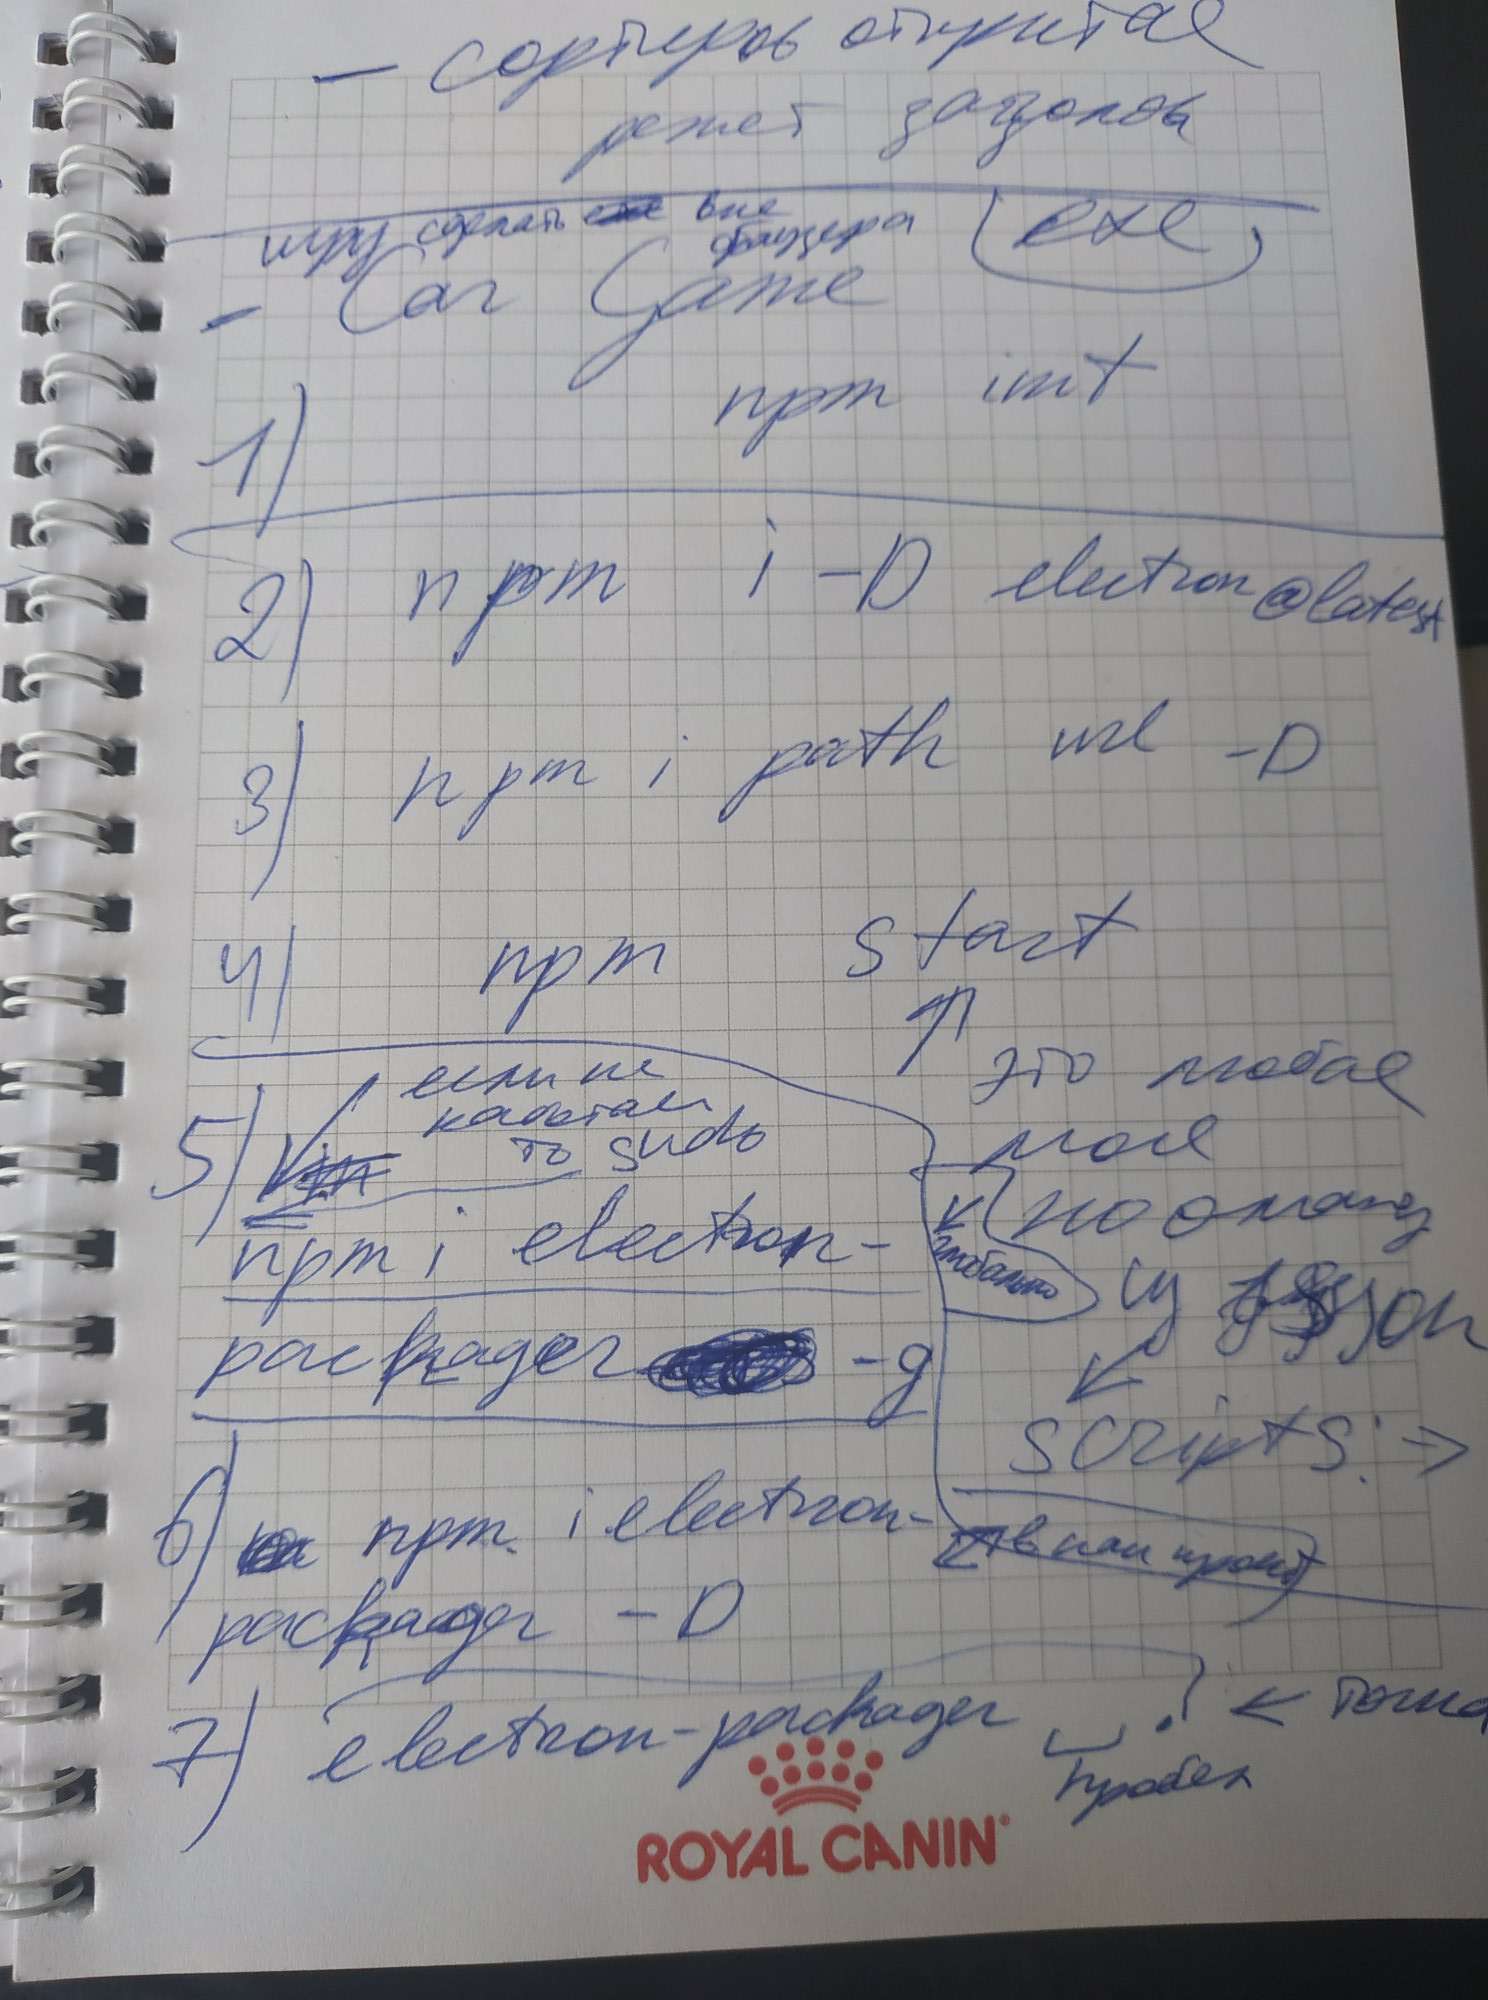 — сортиров открытае
режет
игру сделать вне
браузера
exe
- Car Game
1) npm init
2) npm i -D electron@latest
3) npm i path url -D
4) npm start
это любая
моя
команд
json
scripts: →
5) если не
то sudo
npm i electron-
packager -g
глобально
6) npm i electron-
packager -D
в наш проект
7) electron-packager . ← точка
пробел
ROYAL CANIN